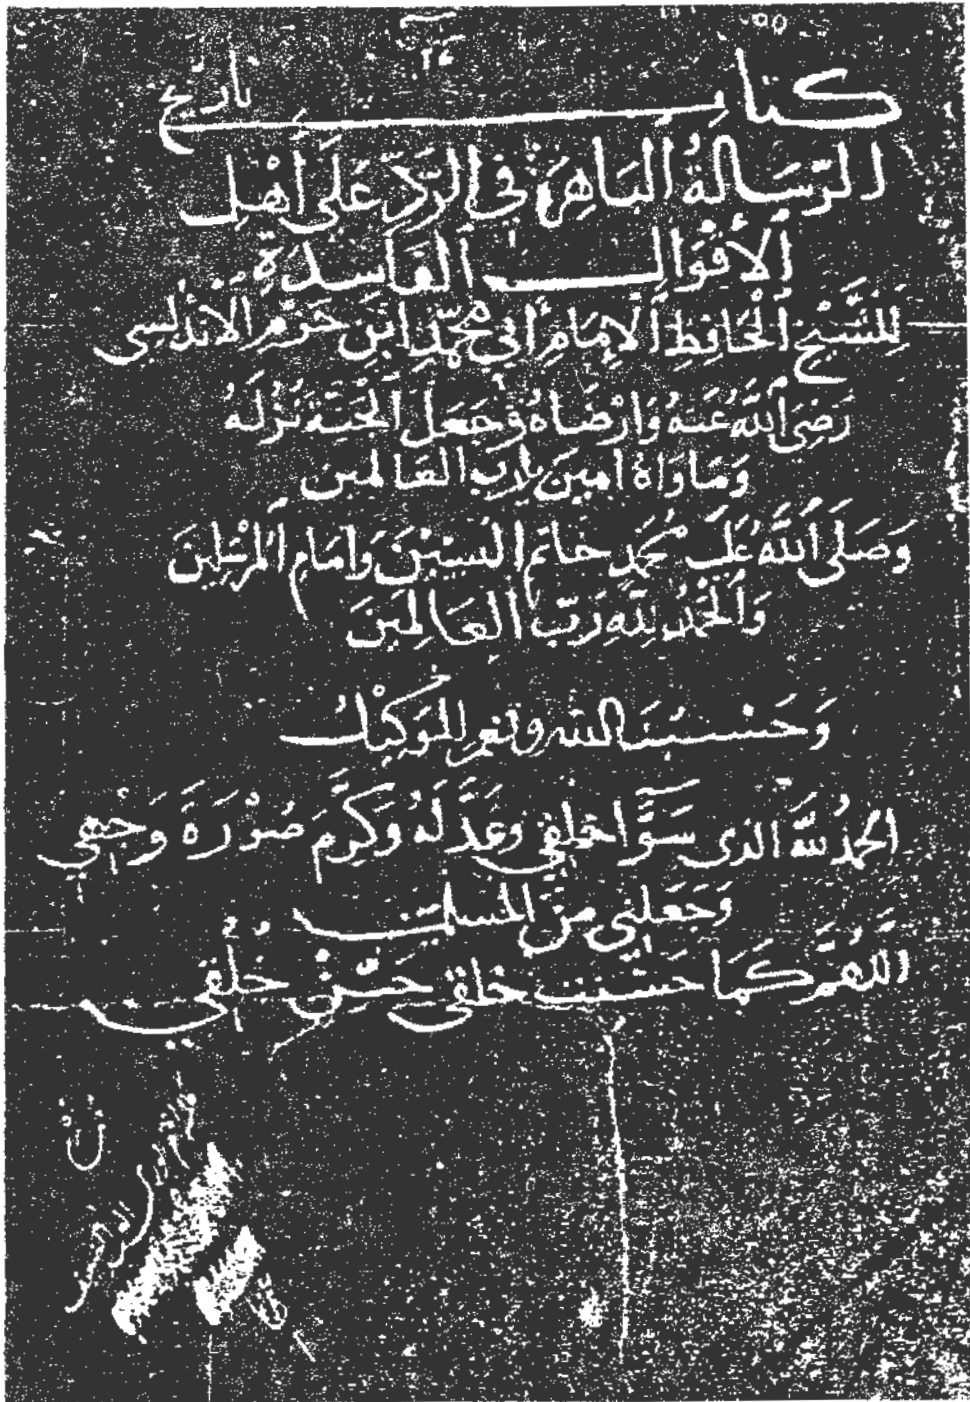 ٥٥
كتاب تاريخ
الرِّسَالةُ البَاهِرَة في الرَّدِّ عَلَى أَهْلِ
اَلأَقْوَالِ اَلفَاسِدَةِ
لِلشَّيْخِ اَلْحَافِظِ اَلْإِمَامِ اَبِي مُحَمَّدٍ ابْنِ حَزْمٍ اَلْأَنْدَلُسِي
رَضِيَ اَللَّهُ عَنهُ وَارْضَاهُ وَجَعَلَ اَلجَنَّةَ نُزُلَهُ
وَمَاوَاهُ امِينَ يَارَبَّ العَالمين
وَصَلَى اَللَّهُ عَلَى مُحَمَّدٍ خَاتَمِ النَّبِيِّينَ وَامَامِ اَلمُرْسَلِينَ
وَاَلْحَمْدُ لِلَّهِ رَبِّ العَالمِينَ
وَحَسْبُنَا الله ونعم الوَكِيْلُ
الحَمْدُ للهِ الذى سَوَّا خلقِي وعَدَّلَهُ وَكَرَّمَ صُوْرَةَ وَجْهِي
وَجَعَلنِى مِنَ المسلمين
اللهُمَّ كَمَا حَسَّنت خلقِى حَسِّنْ خُلُقِي